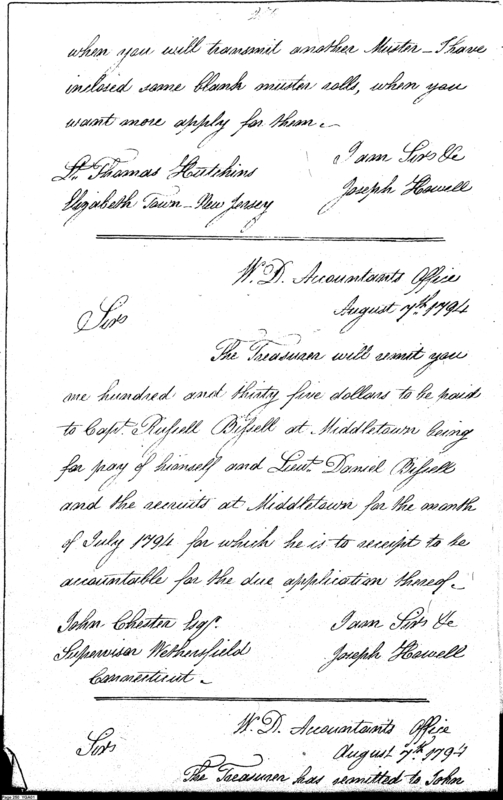 when you will transmit another Muster - I have
inclosed some blank muster rolls, when you
want more apply for them -
Lt. Thomas Hutchins
I am Sir &c
Elizabeth Town - New Jersey
Joseph Howell
W. D. Accountants Office
August 7th 1794
Sir
The Treasurer will remit you
one hundred and thirty five dollars to be paid
to Capt. Russell Bissell at Middletown being
for pay of himself and Lieut. Daniel Bissell
and the recruits at Middletown for the month
of July 1794 for which he is to receipt to be
accountable for the due application thereof -
John Chester Esqr.
I am Sir &c
Supervisor Wethersfield
Joseph Howell
Connecticut -
W. D. Accountants Office
August 7th 1794
Sir
The Treasurer has remitted to John